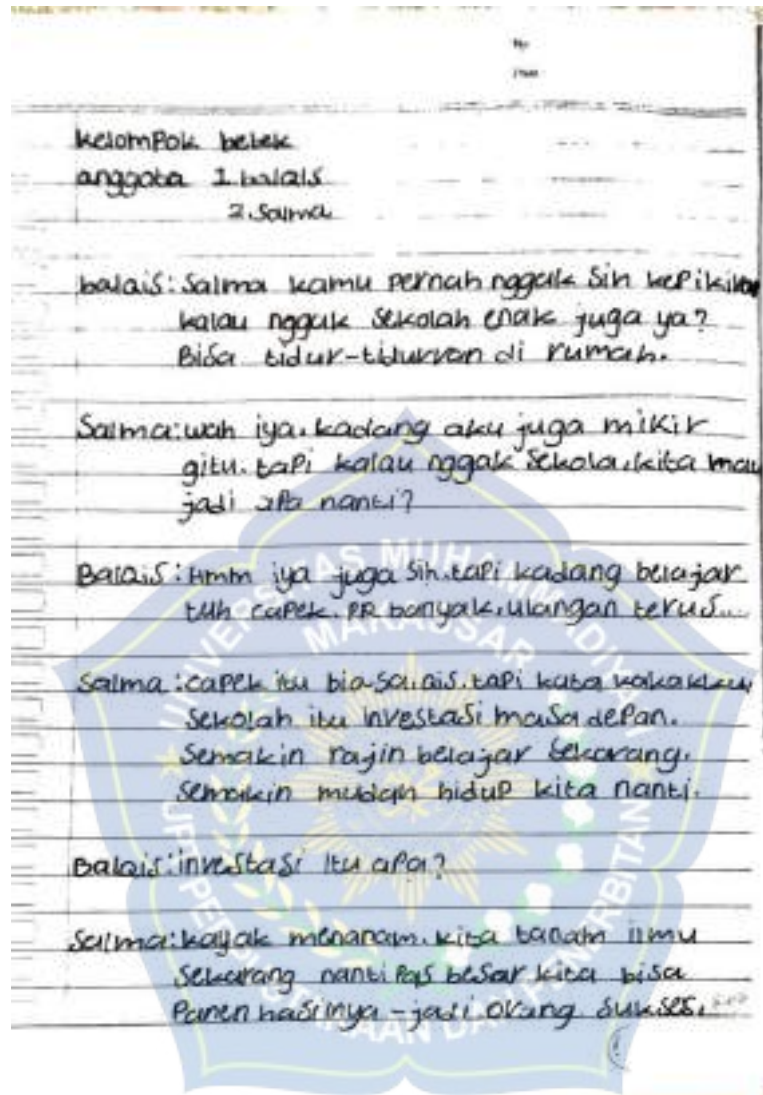 No
Date
kelompok bebek
anggota 1. balais
2. Salma
balais: Salma kamu pernah nggak Sih kepikiran
kalau nggak Sekolah enak juga ya?
Bisa tidur-tiduran di rumah.
Salma: wah iya. kadang aku juga mikir
gitu. tapi kalau nggak Sekola, kita mau
jadi apa nanti?
Balais: Hmm iya juga Sih. tapi kadang belajar
tuh capek. PR banyak, ulangan terus...
Salma: capek itu biasa, ais. tapi kata kakakku,
Sekolah itu investasi masa depan.
Semakin rajin belajar Sekarang.
Semakin mudah hidup kita nanti.
Balais: investasi itu apa?
Salma: kayak menanam. kita tanam ilmu
Sekarang nanti pas besar kita bisa
Panen hasilnya - jadi orang Sukses.
UNIVERSITAS MUHAMMADIYAH
MAKASSAR
UPT PERPUSTAKAAN DAN PENERBITAN